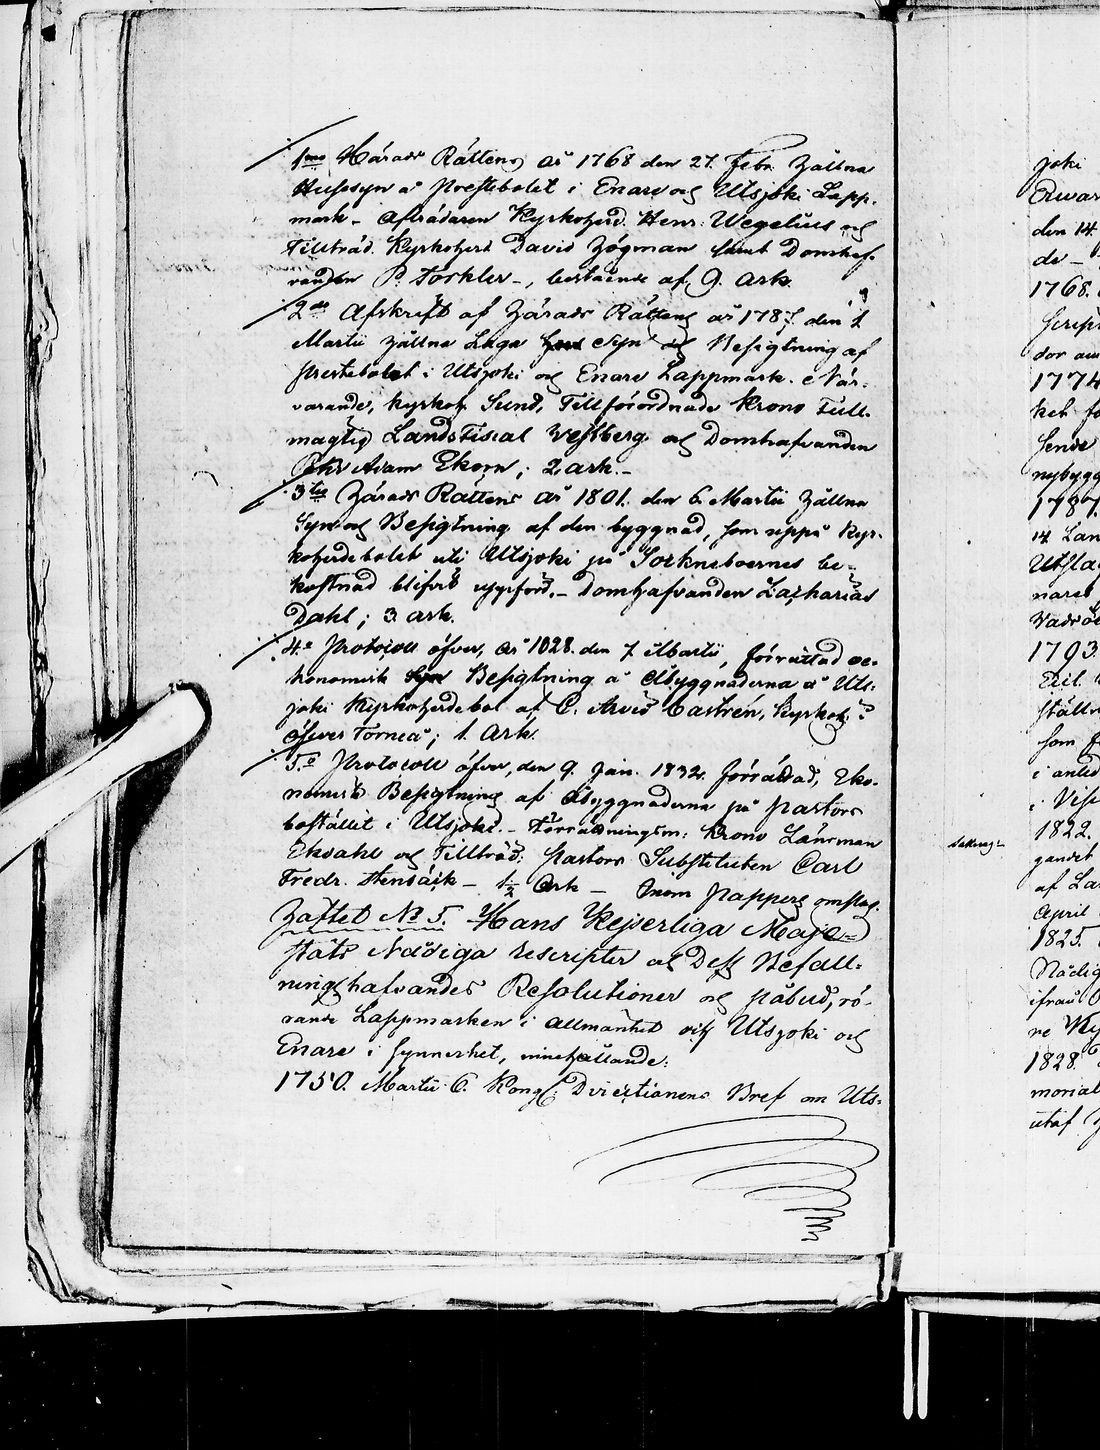 1mo Härads Rättens år 1768 den 27. Febr. hållna
Hussyn å Prestebolet i Enare och Utsjoki Lapp-
mark - Afträdaren Kyrkoherd. Henr. Wegelius och
Tillträd. Kyrkoherd David Högman samt Domhaf-
vanden P. Forkler -, bestående af 9. Ark.
2do Afskrift af Härads Rättens år 1787. den 1
Martii hållna Laga Syn och Besigtning af
Prestebolet i Utsjoki og Enare Lappmark. När-
varande, Kyrkoh. Sund, Tillförordnade Krono Full-
magtig LandsFiscal Westberg och Domhafvanden
Pehr Adam Ekorn; 2 ark. -
3tio Härads Rättens år 1801. den 6. Martii hållna
Syn och Besigtning af den byggnad, som uppå Kyr-
koherdebolet uti Utsjoki på Socknaboernes be-
kostnad blifvit uppförd. - Domhafvanden Zacharias
Dahl; 3 ark.
4:o Protocoll öfver, år 1828. den 7 Martii, förrättad oe-
konomisk Besigtning å Åbyggnaderna å Uts-
joki Kyrkoherdebol af C. Arvid Castrén, Kyrkoh. i
Öfver Torneå; 1. Ark.
5:o Protocoll öfver, den 9. Jan. 1832. förrättad, Eko-
nomisk Besigtning af Åbyggnaderna på Pastors
bostället i Utsjoki. - Förrättningsm: Krono Länsman
Ekdahl och Tillträd: Pastors Substituten Carl
Fredr. Stenbäck - 1/2 Ark - Inom Pappers omslag.
Häftet No 5. Hans Kejserliga Maje-
stäts Nådiga Rescripter och Dess Befall-
ningshafvandes Resolutioner och påbud, rö-
rande Lappmarken i allmänhet och Utsjoki och
Enare i synnerhet, innehållande:
1750. Martii 6. Kongl: Directionens Bref om Uts-
joki
den 14
de -
1768.
1774
ket
sende
nybygg
1787.
14 Lan
Utslag
1793.
som
1822.
gandet
af La
April
1825.
Nådig
ifrån
re Ky
1828.
morial
utaf